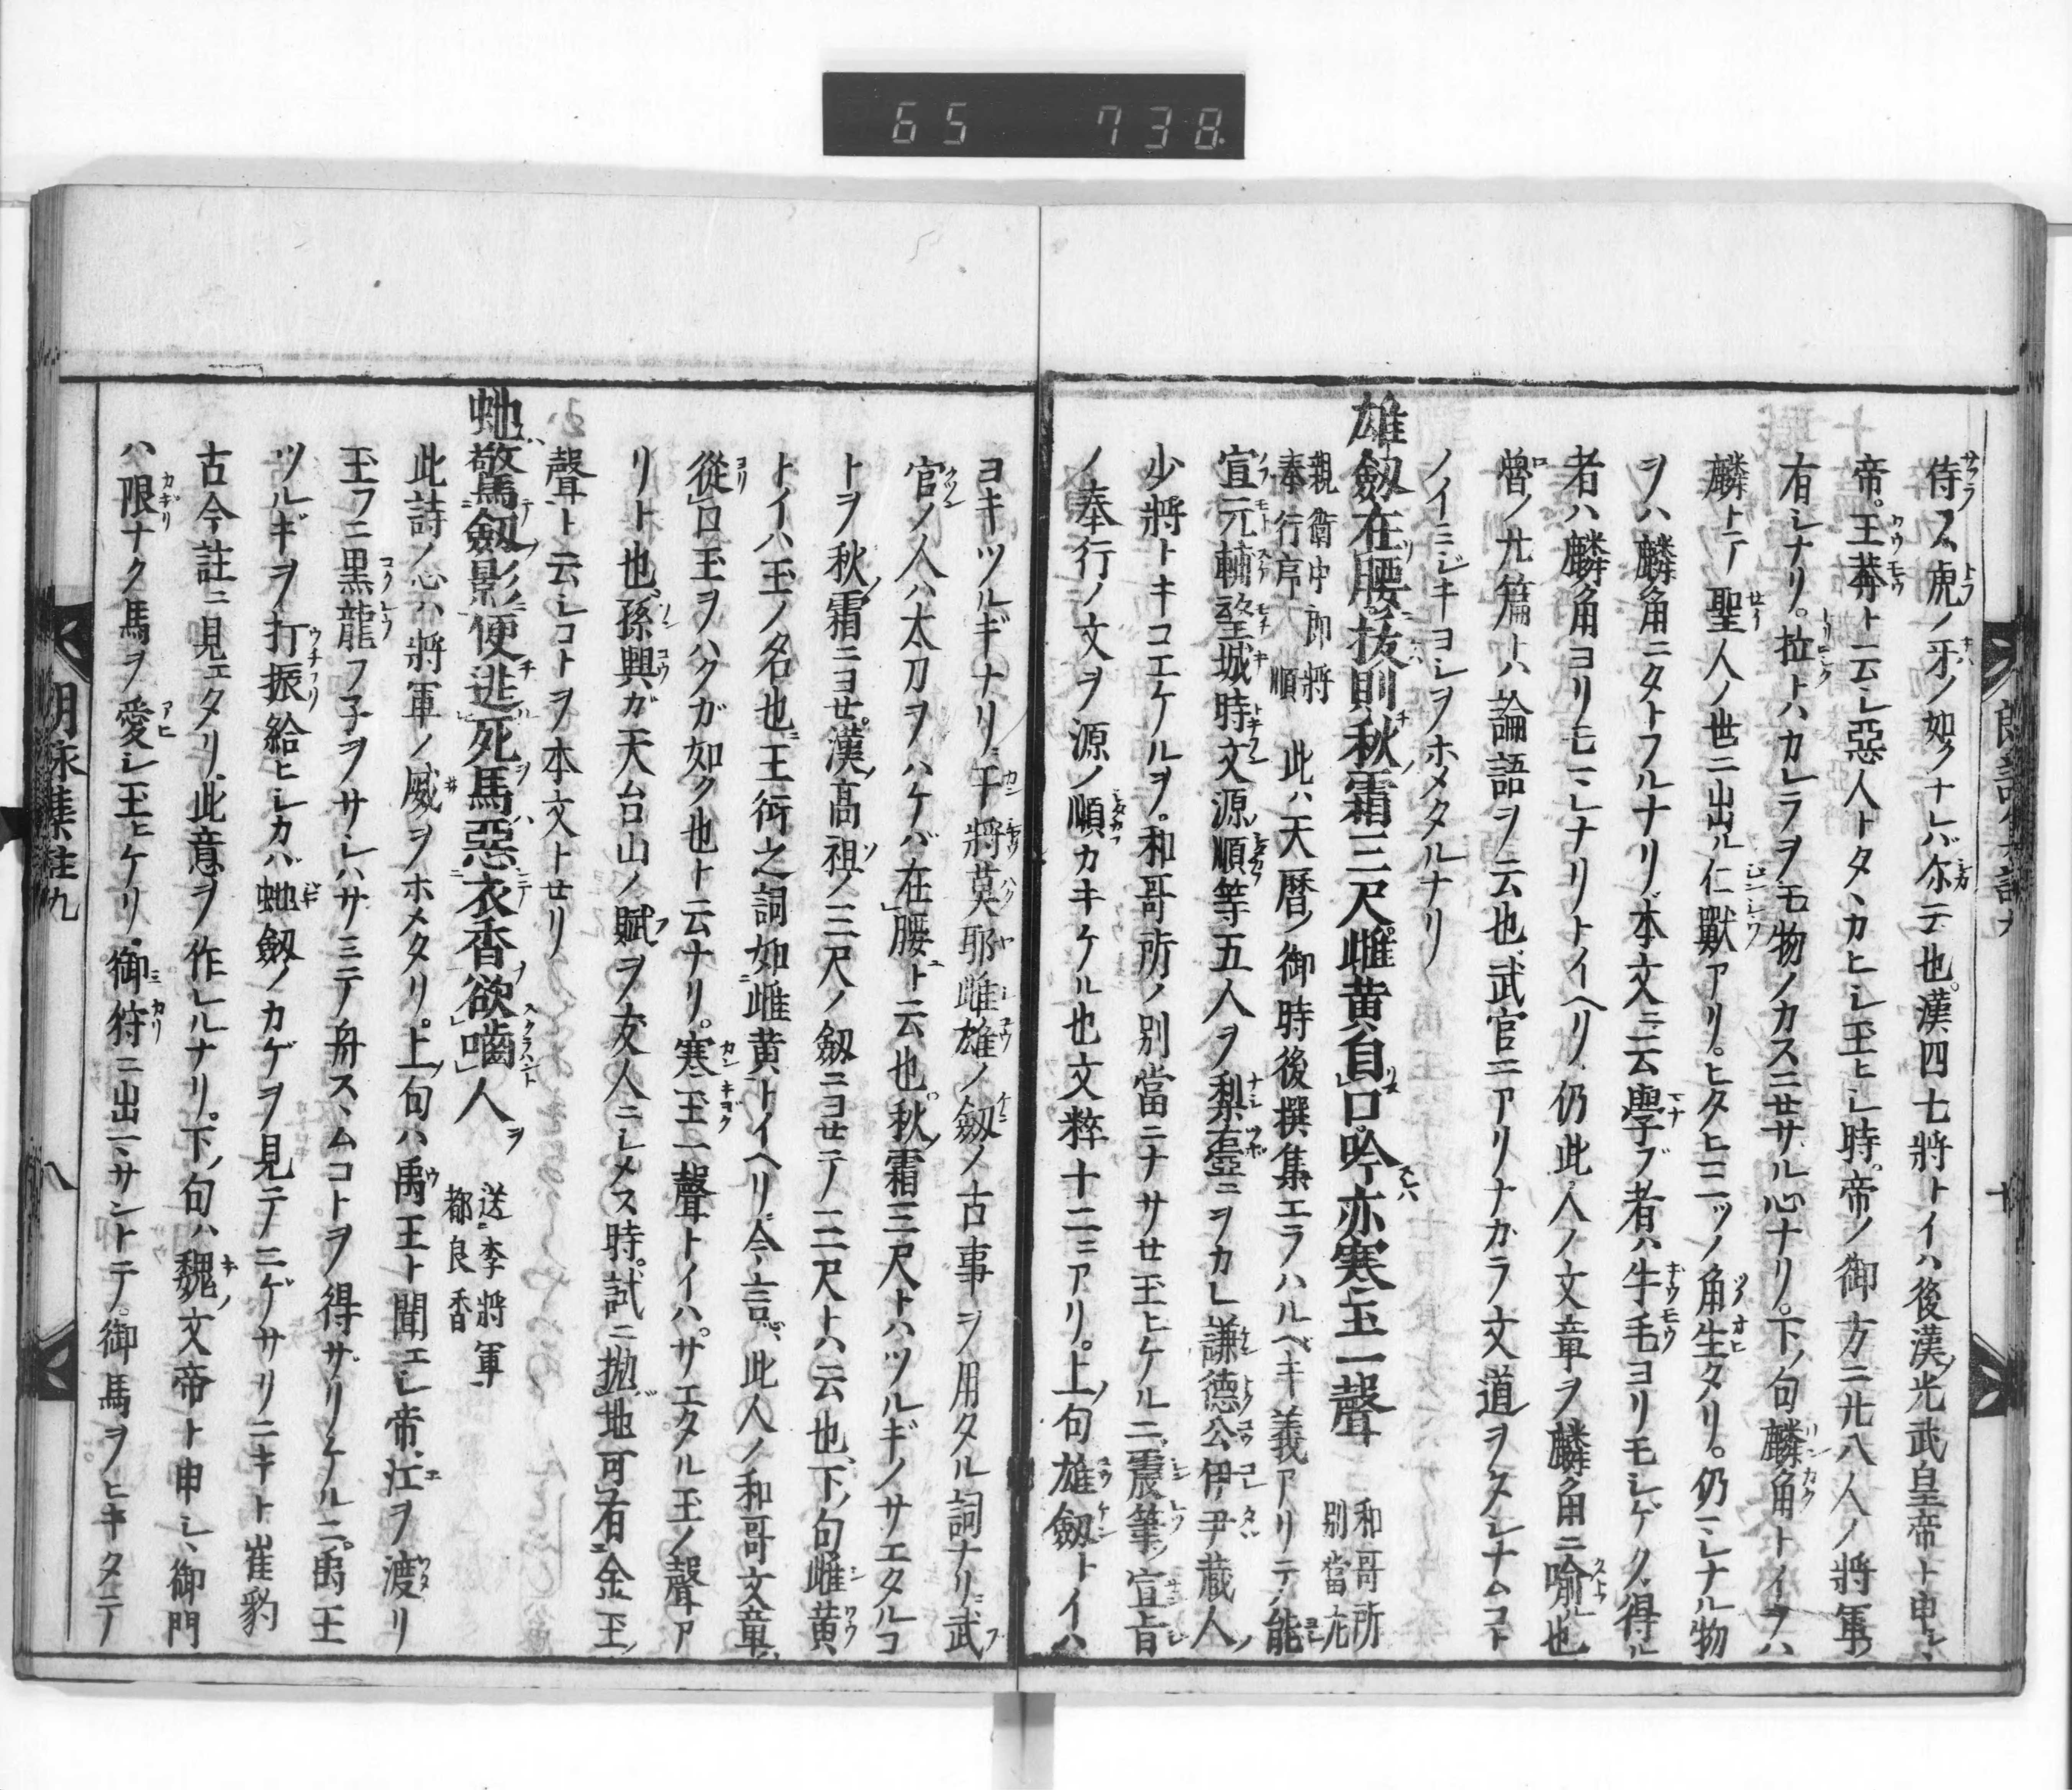 65 738
侍フ虎ノ牙ノ如クナレバ尓云也。漢四七將トイハ後漢ノ光武皇帝ト申シ、
帝。王莽ト云シ惡人トタヽカヒシ玉ヒシ時。帝ノ御方ニ廿八人ノ將軍
有シナリ。拉トハカレラヲモ物ノカスニセサル心ナリ。下ノ句麟角トイヲハ
麟トテ聖人ノ世ニ出ル仁獸アリ。ヒタヒニ一ツノ角生タリ。仍マレナル物
ヲハ麟角ニタトフルナリ。本文ニ云學ブ者ハ牛毛ヨリモシゲク得ル
者ハ麟角ヨリモマレナリトイヘリ。仍此人ノ文章ヲ麟角ニ喩ル也
曾ノ廿篇トハ論語ヲ云也。武官ニアリナガラ文道ヲタシナムコト
ノイミジキヨシヲホメタルナリ
雄劔在腰。拔則秋霜三尺雌黄自口。吟亦寒玉一聲
和哥所
別當尤
親衛中郎將
奉行序 順
此ハ天暦ノ御時後撰集エラハルベキ義アリテ。能
宣元輔望城時文源順等五人ヲ梨壷ニヲカレ謙德公伊尹藏人ノ
少將トキコエケルヲ。和哥所ノ別當ニナサセ玉ヒケルニ。震筆ノ宣旨
ノ奉行ノ文ヲ源ノ順カキケル也文粹十二ニアリ。上ノ句雄劔トイハ
ヨキツルギナリ。干將莫耶雌雄ノ劔ノ古事ヲ用タル詞ナリ。武
官ノ人ハ太刀ヲハケバ在腰ト云也。秋ノ霜三尺トハツルギノサエタルコ
トヲ秋ノ霜ニヨセ。漢ノ髙祖ノ三尺ノ劔ニヨセテノ三尺トハ云也。下ノ句雌黄
トイハ玉ノ名也。王衍之詞如雌黄トイヘリ。今言心ハ此人ノ和哥文章。
從口玉ヲハクガ如ク也ト云ナリ。寒玉一聲トイハ。サエタル玉ノ聲ア
リト也。孫興ガ天台山ノ賦ヲ友人ニシメス時。試ニ抛地可有金玉ノ
聲ト云シコトヲ本文トセリ
虵驚劔影便逃死馬惡衣香欲嚙人
送李將軍
都良香
此詩ノ心ハ將軍ノ威ヲホメタリ。上ノ句ハ禹王ト聞エシ帝。江ヲ渡リ
玉フニ黒龍フ子ヲサシハサミテ舟スヽムコトヲ得サリケルニ。禹王
ツルギヲ打振給ヒシカバ虵劔ノカゲヲ見テニゲサリニキト崔豹
古今註ニ見エタリ。此意ヲ作レルナリ。下ノ句ハ魏ノ文帝ト申シヽ御門
ハ限ナク馬ヲ愛シ玉ヒケリ。御狩ニ出マサントテ。御馬ヲヒキタテ
朗詠集註九
八